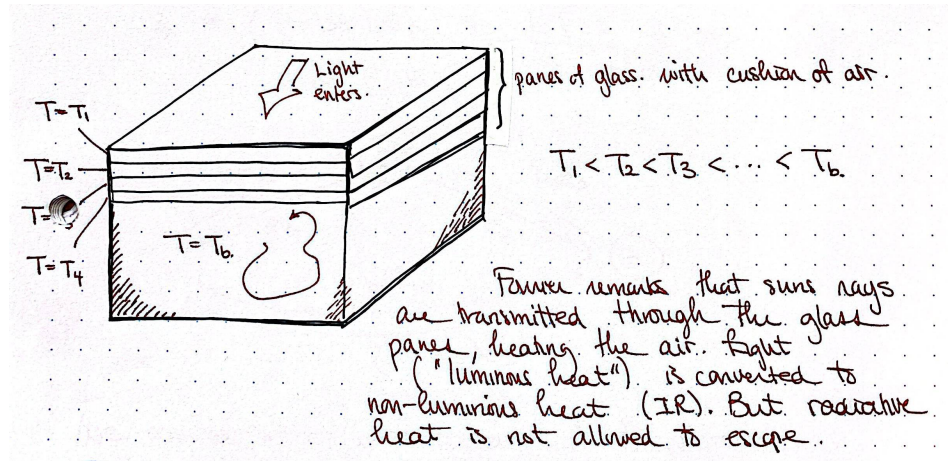 Light
enters.
panes of glass. with cushion of air.
T=T₁
T=T₂
T=
T=T₄
T=T_b.
T₁<T₂<T₃<···<T_b.
Fourier remarks that suns rays
are transmitted through the glass
panes, heating the air. Light
("luminous heat") is converted to
non-luminious heat (IR). But radiative
heat is not allowed to escape.